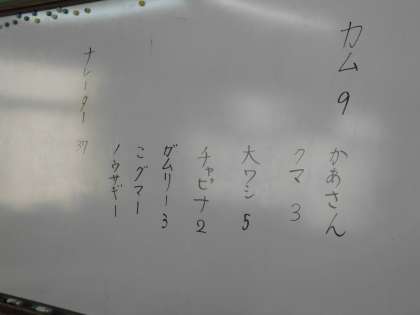 カム 9
かあさん
クマ 3
大ワシ 5
チャピナ 2
ガムリー 3
こグマー
ノウサギー
ナレーター 37